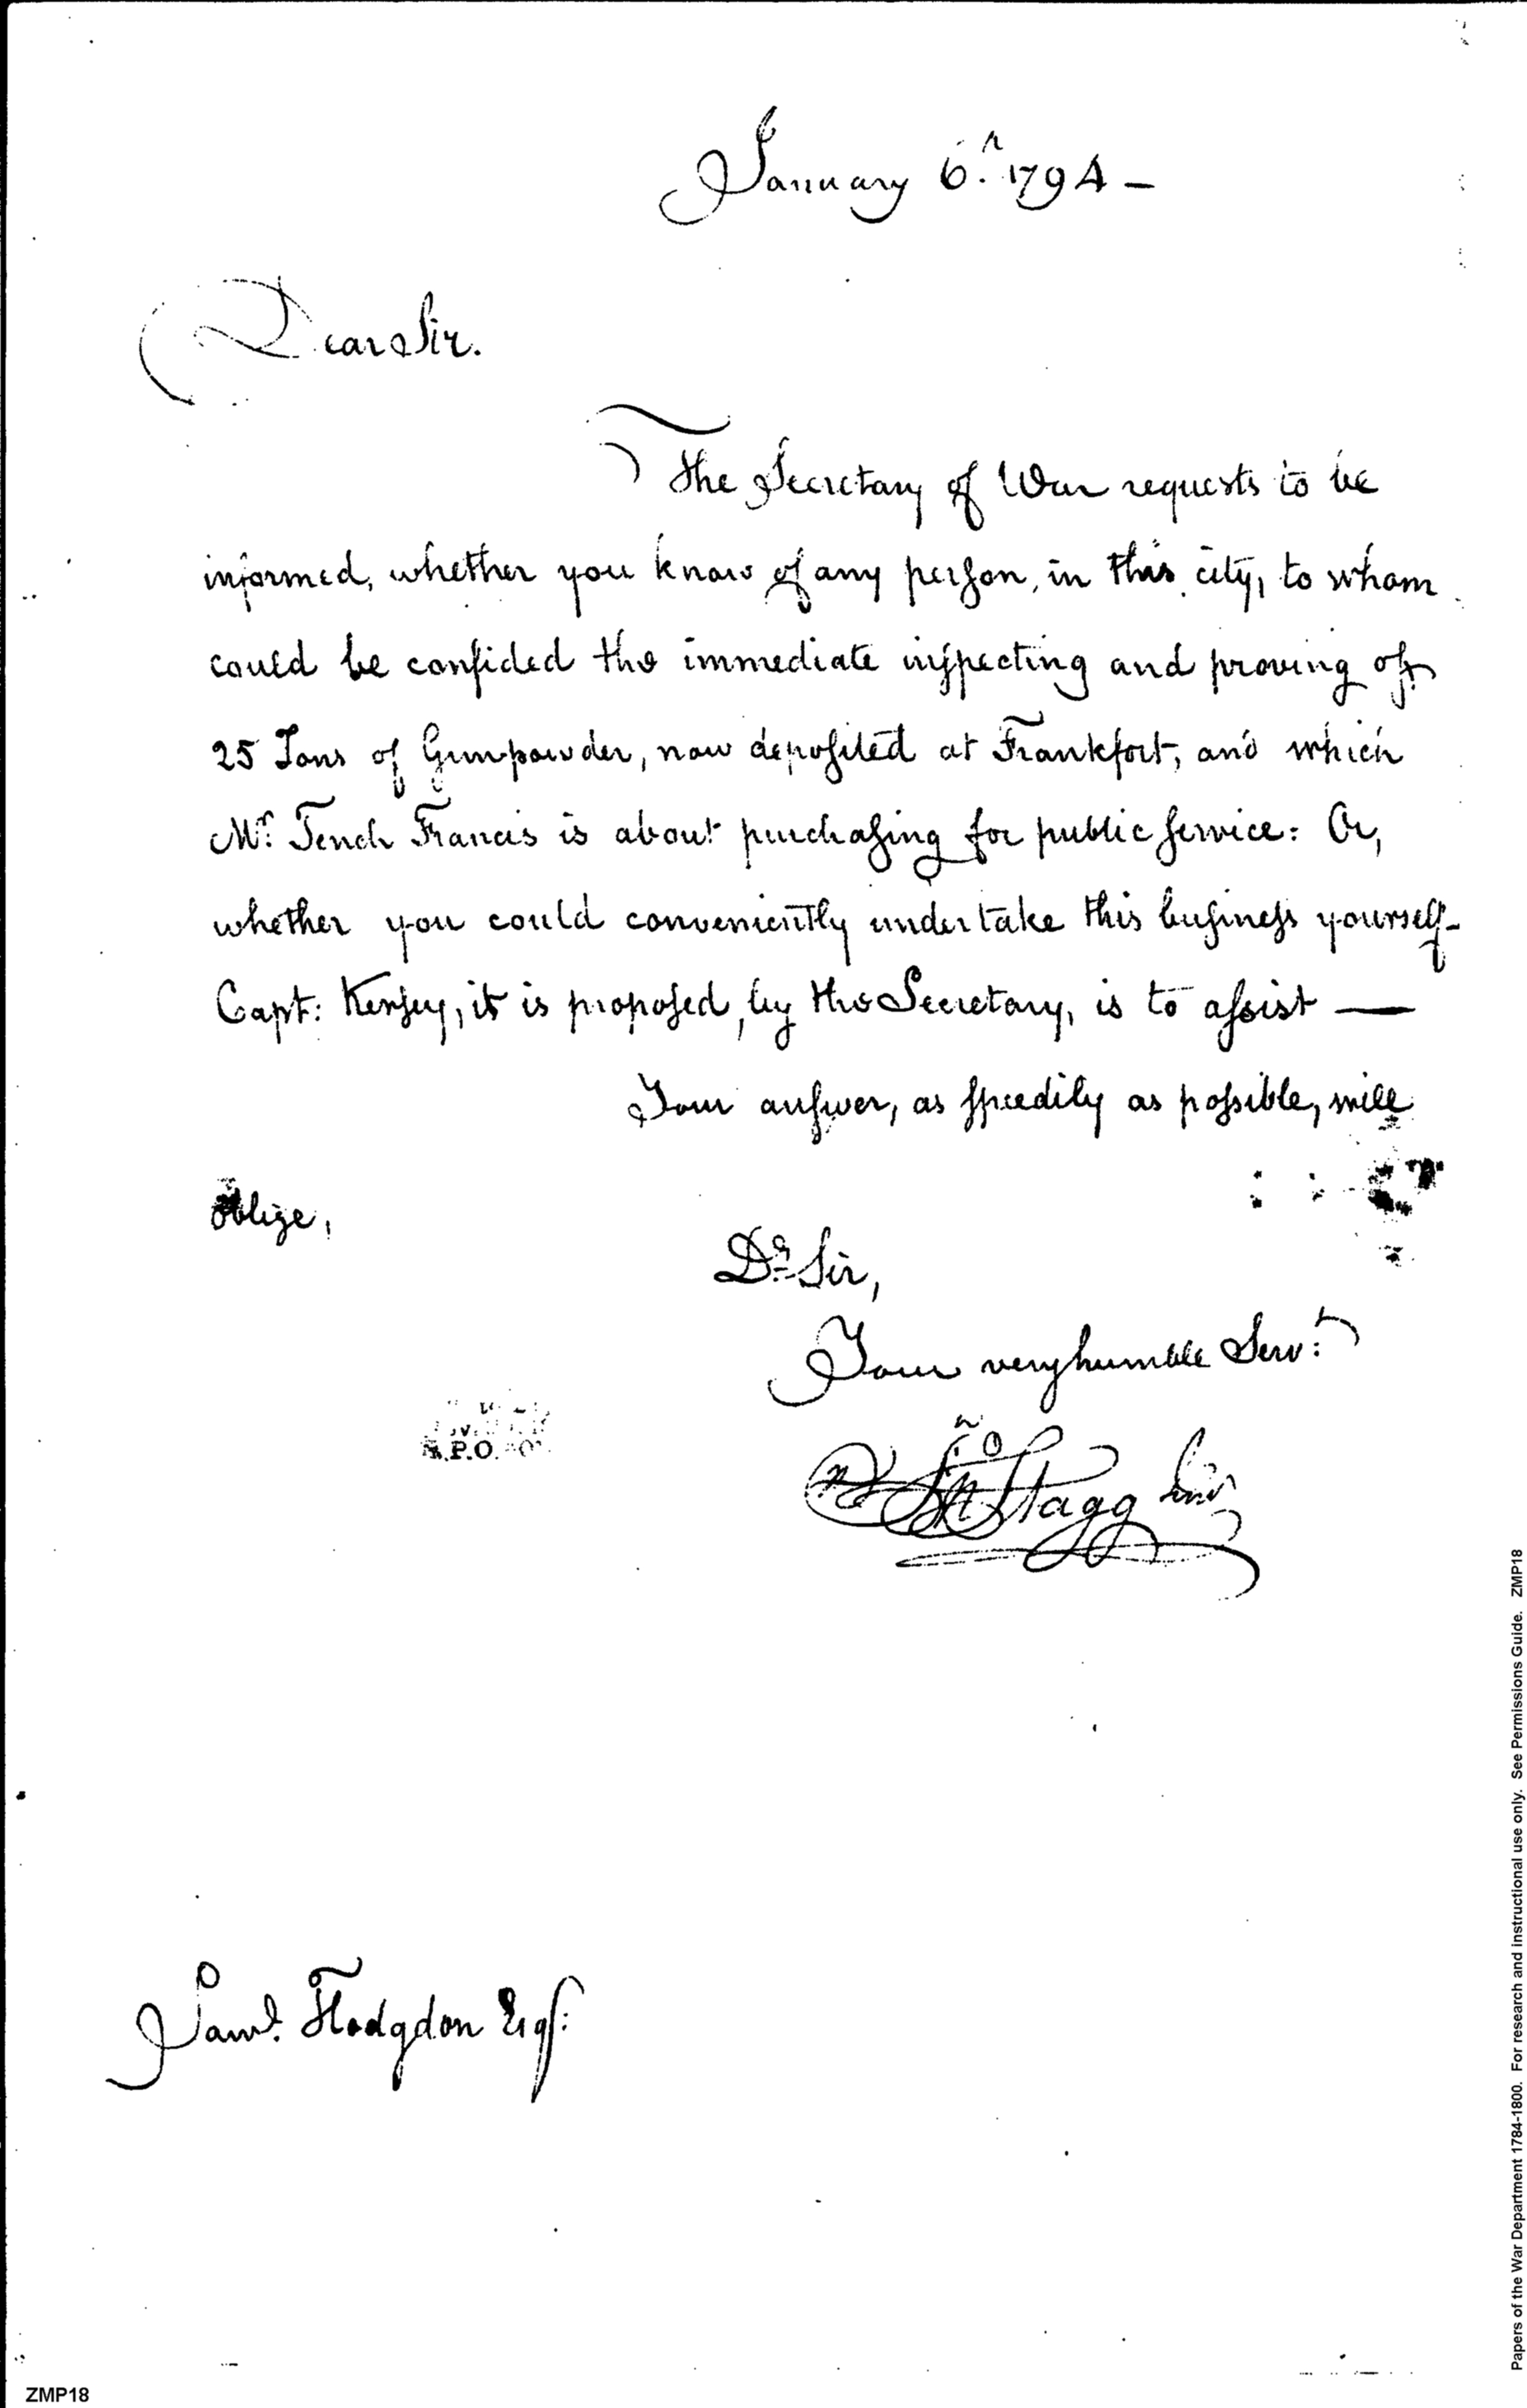 January 6.h 1794 —
Dear Sir.
The Secretary of War requests to be
informed, whether you know of any person, in this city, to whom
could be confided the immediate inspecting and proving of
25 Tons of Gunpowder, now deposited at Frankfort, and which
Mr. Tench Francis is about purchasing for public service: Or,
whether you could conveniently undertake this business yourself-
Capt: Kersey, it is proposed, by the Secretary, is to assist —
Your answer, as speedily as possible, will
oblige,
Dr. Sir,
Your very humble Serv:t
Jno Stagg Junr
P.O.
Saml. Hodgdon Esqr:
Papers of the War Department 1784-1800. For research and instructional use only. See Permissions Guide. ZMP18
ZMP18